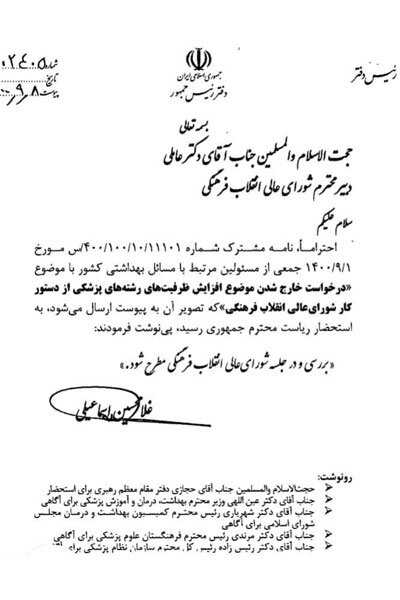 رئیس دفتر
جمهوری اسلامی ایران
دفتر رئیس جمهور
شماره
تاریخ
پیوست
بسمه تعالی
حجت الاسلام والمسلمین جناب آقای دکتر عاملی
دبیر محترم شورای عالی انقلاب فرهنگی
سلام علیکم
احتراماً، نامه مشترک شماره ۴۰۰/۱۰۰/۱۰/۱۱۱۰۱/س مورخ
۱۴۰۰/۹/۱ جمعی از مسئولین مرتبط با مسائل بهداشتی کشور با موضوع
«درخواست خارج شدن موضوع افزایش ظرفیت‌های رشته‌های پزشکی از دستور
کار شورای‌عالی انقلاب فرهنگی» که تصویر آن به پیوست ارسال می‌شود، به
استحضار ریاست محترم جمهوری رسید، پی‌نوشت فرمودند:
«بررسی و در جلسه شورای عالی انقلاب فرهنگی مطرح شود.»
غلامحسین اسماعیلی
رونوشت:
حجت‌الاسلام والمسلمین جناب آقای حجازی دفتر مقام معظم رهبری برای استحضار
جناب آقای دکتر عین اللهی وزیر محترم بهداشت، درمان و آموزش پزشکی برای آگاهی
جناب آقای دکتر شهریاری رئیس محترم کمیسیون بهداشت و درمان مجلس
شورای اسلامی برای آگاهی
جناب آقای دکتر مرندی رئیس محترم فرهنگستان علوم پزشکی برای آگاهی
جناب آقای دکتر رئیس زاده رئیس کل محترم سازمان نظام پزشکی برای آگاهی